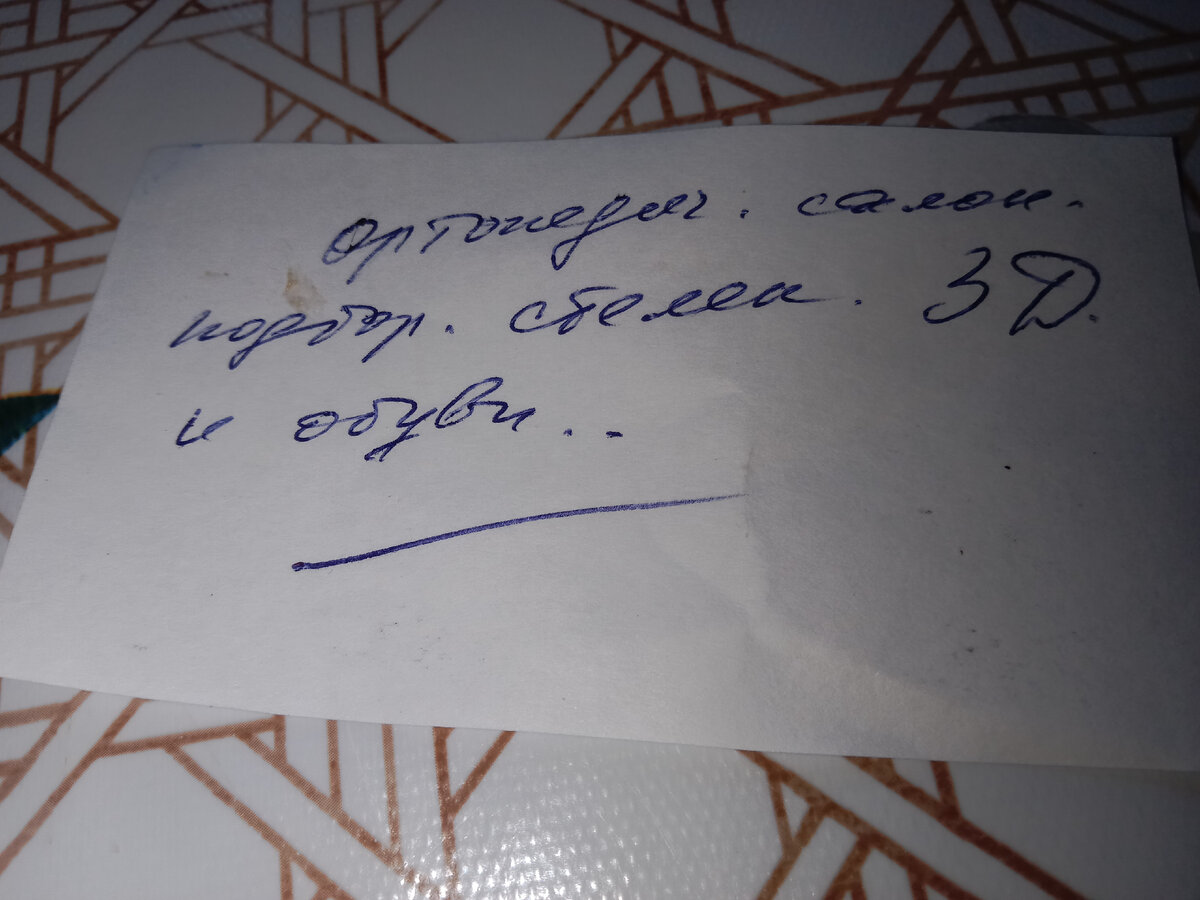 ортопедич. салон.
подбор. стелек. 3Д.
и обуви..